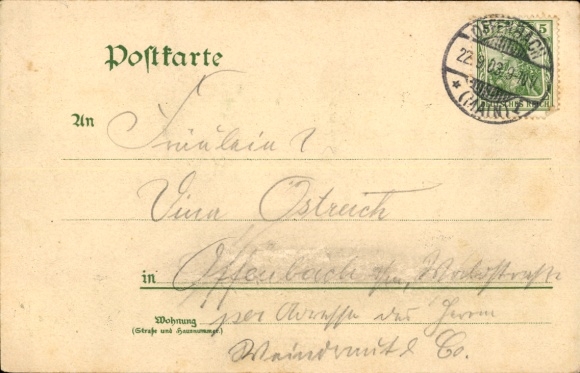 Postkarte
OFFENBACH
22.9.03
(MAIN)
5
DEUTSCHES REICH
An Fräulein
Vina Ostreich
in Offenbach a/m, Waldstraße
Wohnung
(Straße und Hausnummer.)
per Adresse des Herrn
& Co.